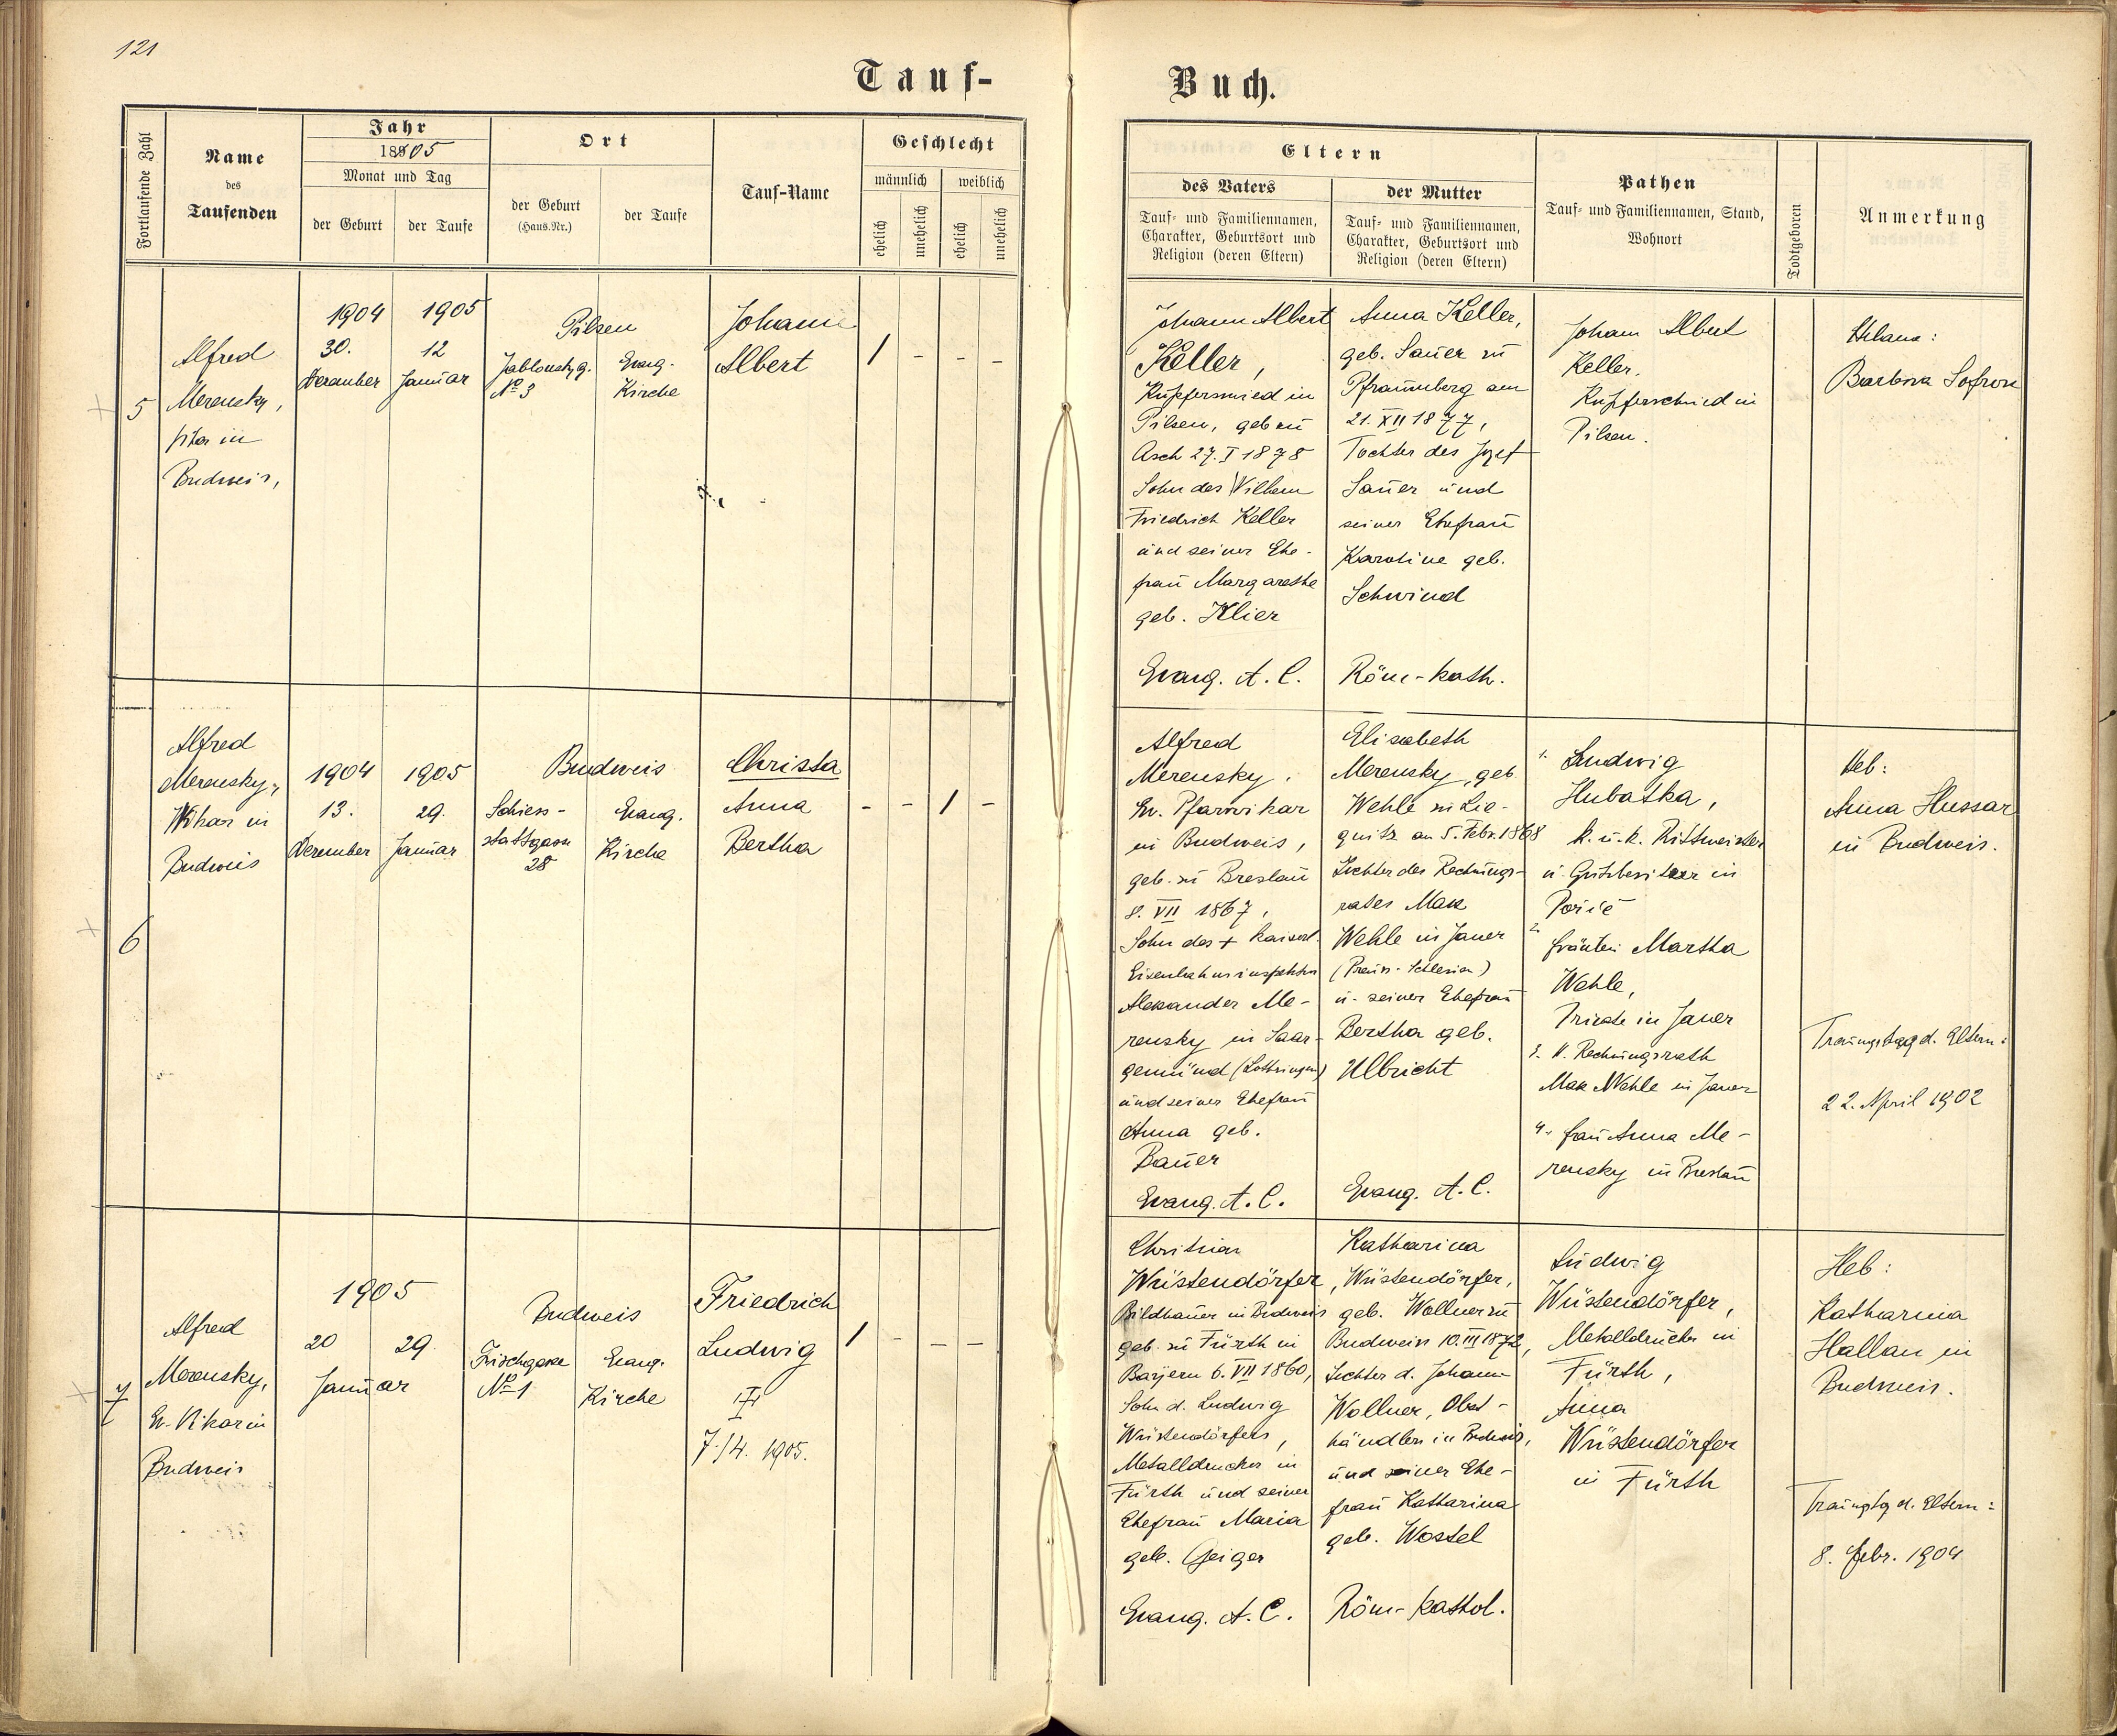 121
Tauf-
Buch.
Fortlaufende Zahl
Name
des
Taufenden
Jahr
1905
Monat und Tag
der Geburt
der Taufe
Ort
der Geburt
(Haus-Nr.)
der Taufe
Tauf-Name
Geschlecht
männlich
weiblich
ehelich
unehelich
ehelich
unehelich
Eltern
des Vaters
Tauf- und Familiennamen,
Charakter, Geburtsort und
Religion (deren Eltern)
der Mutter
Tauf- und Familiennamen,
Charakter, Geburtsort und
Religion (deren Eltern)
Pathen
Tauf- und Familiennamen, Stand,
Wohnort
Todtgeboren
Anmerkung
5
Alfred
Merensky,
in
Budweis,
1904
30.
Dezember
1905
12
Januar
Pilsen
Jablonskyg.
No 3
Evang.
Kirche
Johann
Albert
/ - - -
Johann Albert
Keller,
Kupferschmied in
Pilsen, geb zu
Asch 27. I 1878
Sohn des Wilhem
Friedrich Keller
und seiner Ehe-
frau Margarethe
geb. Klier
Evang. A. C.
Anna Keller,
geb. Sauer zu
Pfraumberg am
21. XII 1877,
Tochter des Josef
Sauer und
seiner Ehefrau
Karoline geb.
Schwind
Röm-kath.
Johann Albert
Keller.
Kupferschmied in
Pilsen.
Barbora
6
Alfred
Merensky,
Vikar in
Budweis
1904
13.
Dezember
1905
29.
Januar
Budweis
Schiess-
stattgasse
28
Evang.
Kirche
Christa
Anna
Bertha
- - / -
Alfred
Merensky.
Ev. Pfarrvikar
in Budweis,
geb. zu Breslau
8. VII 1867,
Sohn des + kaiserl.
Eisenbahninspektor
Alexander Me-
rensky in Saar-
gemünd (Lothringen)
und seiner Ehefrau
Anna geb.
Bauer
Evang. A. C.
Elisabeth
Merensky, geb.
Wehle zu Lie-
gnitz am 5. Febr. 1868
Tochter des Rechnungs-
rates Max
Wehle in Jauer
(Preuss-Schlesien)
u. seiner Ehefrau
Bertha geb.
Ulbricht
Evang. A. C.
1. Ludwig
Hubatka,
k. u. k. Rittmeister
u. Gutsbesitzer in
Poříč
2. Fräulein Martha
Wehle,
Private in Jauer
3. Rechnungsrath
Max Wehle in Jauer
4. Frau Anna Me-
rensky in Breslau
Heb:
Anna Hussar
in Budweis.
Trauungstag d. Eltern:
22. April 1902
7
Alfred
Merensky,
Ev. Vikar in
Budweis
1905
20
29.
Januar
Budweis
Fischgasse
No 1
Evang.
Kirche
Friedrich
Ludwig
7./4. 1905.
/ - - -
Christian
Wüstendörfer,
Bildhauer in Budweis
geb. zu Fürth in
Bayern 6. VII 1860,
Sohn d. Ludwig
Wüstendörfers,
Metalldrucker in
Fürth und seiner
Ehefrau Maria
geb. Geiger
Evang. A. C.
Katharina
Wüstendörfer,
geb. Wollner zu
Budweis 10. III 1872,
Tochter d. Johann
Wollner, Obst-
händlers in Budweis,
und seiner Ehe-
frau Katharina
geb. Wostel
Röm-kathol.
Ludwig
Wüstendörfer,
Metalldrucker in
Fürth,
Anna
Wüstendörfer
in Fürth
Heb:
Katharina
Hallan in
Budweis.
Trauungstg d. Eltern:
8. Febr. 1904